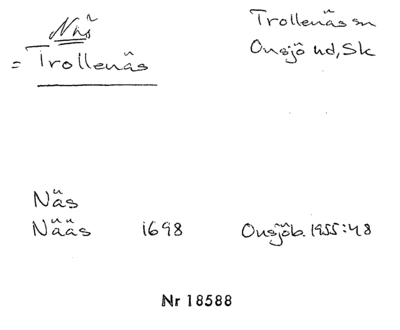 Näs
= Trollenäs
Trollenäs sn
Onsjö hd, Sk
Näs
Nääs 1698 Onsjöb. 1955:48
Nr 18588